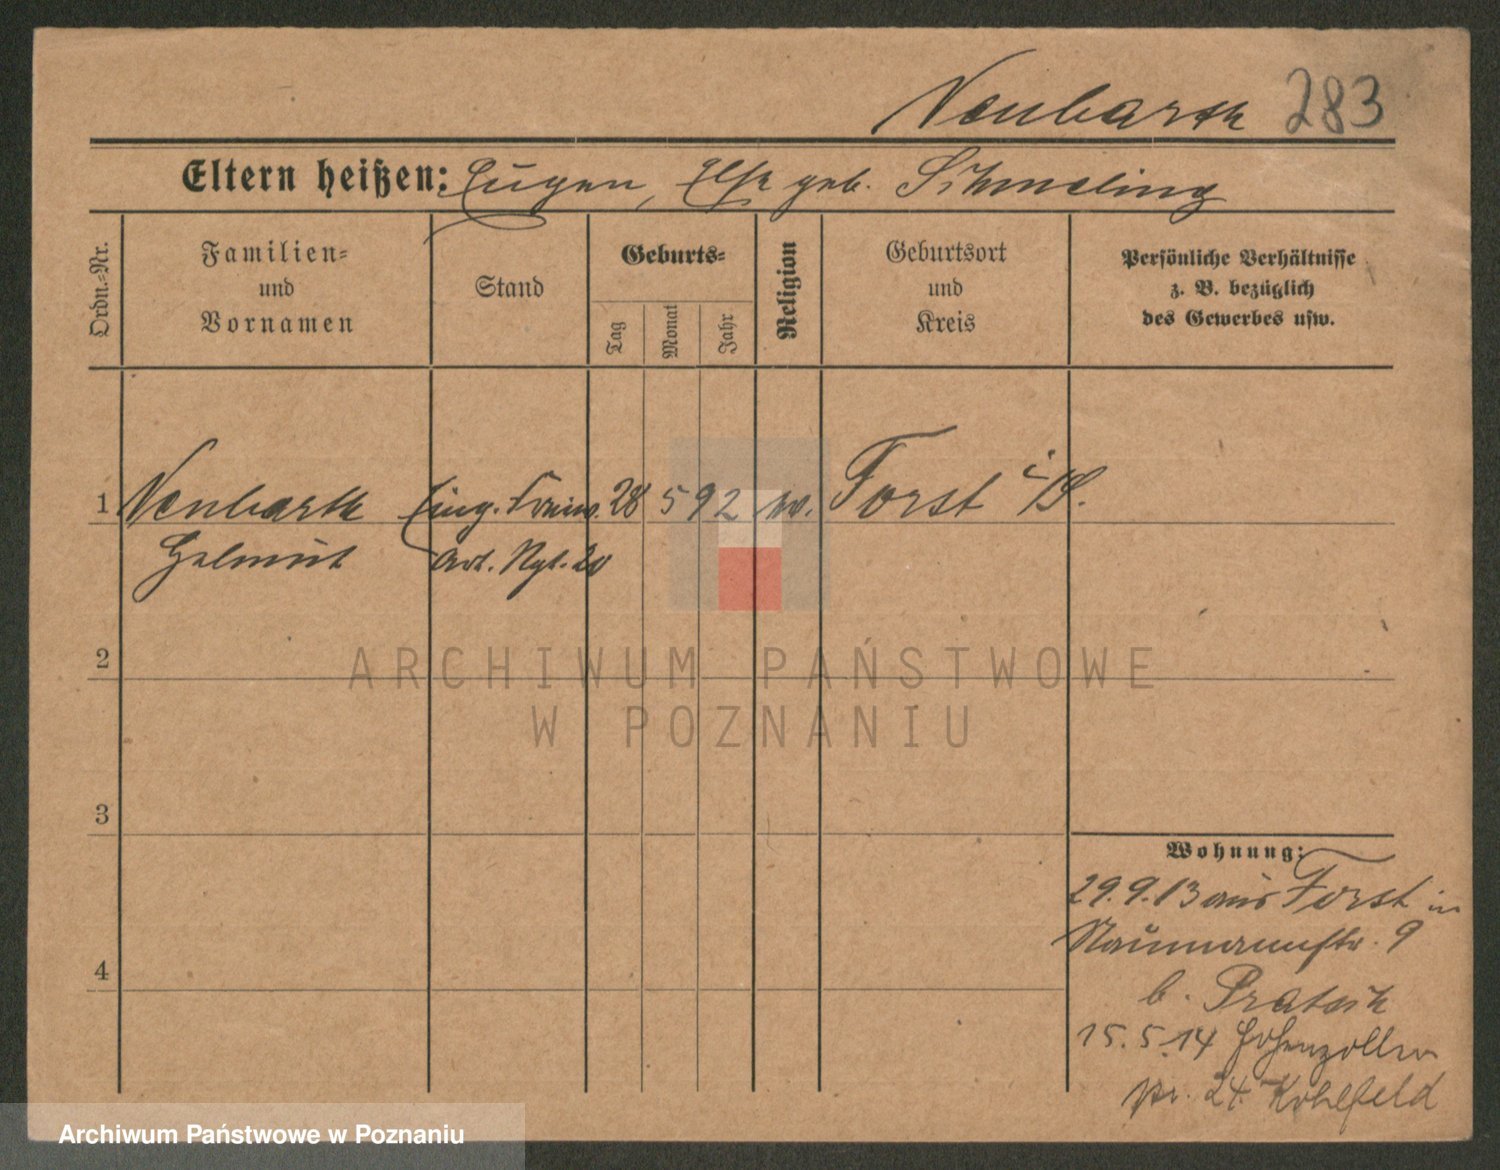 Neubarth 283
Eltern heißen: Eugen, Else geb. Schmeling
Ordn.=Nr.
Familien=
und
Vornamen
Stand
Geburts=
Tag
Monat
Jahr
Religion
Geburtsort
und
Kreis
Persönliche Verhältnisse
z. B. bezüglich
des Gewerbes usw.
1 Neubarth Einj. Freiw. 28 5 92 ev. Forst i/L.
Helmut Art. Rgt. 20
2
ARCHIWUM PAŃSTWOWE
W POZNANIU
3
Wohnung:
29.9.13 aus Forst in
Naumannstr. 9
b.
4
15.5.14 Hohenzollern
24. Kohlfeld
Archiwum Państwowe w Poznaniu